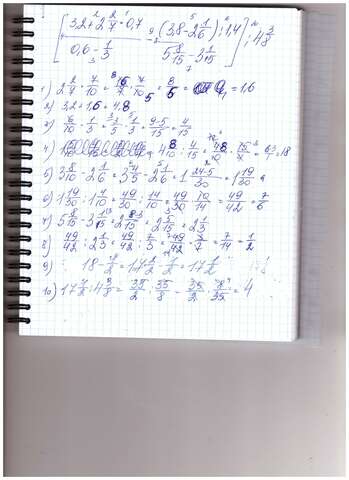 [(3,2 + 2 2/7 · 0,7) / (0,6 - 1/3) - ((3,8 - 2 1/6) : 1,4) / (5 8/15 - 3 1/5)] : 4 3/8
1) 2 2/7 · 7/10 = 16/7 · 7/10 = 8/5 = 1,6
2) 3,2 + 1,6 = 4,8
3) 6/10 - 1/3 = 3/5 - 1/3 = 9-5/15 = 4/15
4) 4 8/10 : 4/15 = 48/10 · 15/4 = 18
5) 3 8/10 - 2 1/6 = 3 4/5 - 2 1/6 = 1 24-5/30 = 1 19/30
6) 1 19/30 : 1,4 = 49/30 : 14/10 = 49/30 · 10/14 = 49/42 = 7/6
7) 5 8/15 - 3 1/5 = 2 8-3/15 = 2 5/15 = 2 1/3
8) 49/42 : 2 1/3 = 49/42 : 7/3 = 49/42 · 3/7 = 7/14 = 1/2
9) 18 - 1/2 = 17 2/2 - 1/2 = 17 1/2
10) 17 1/2 : 4 3/8 = 35/2 : 35/8 = 35/2 · 8/35 = 4